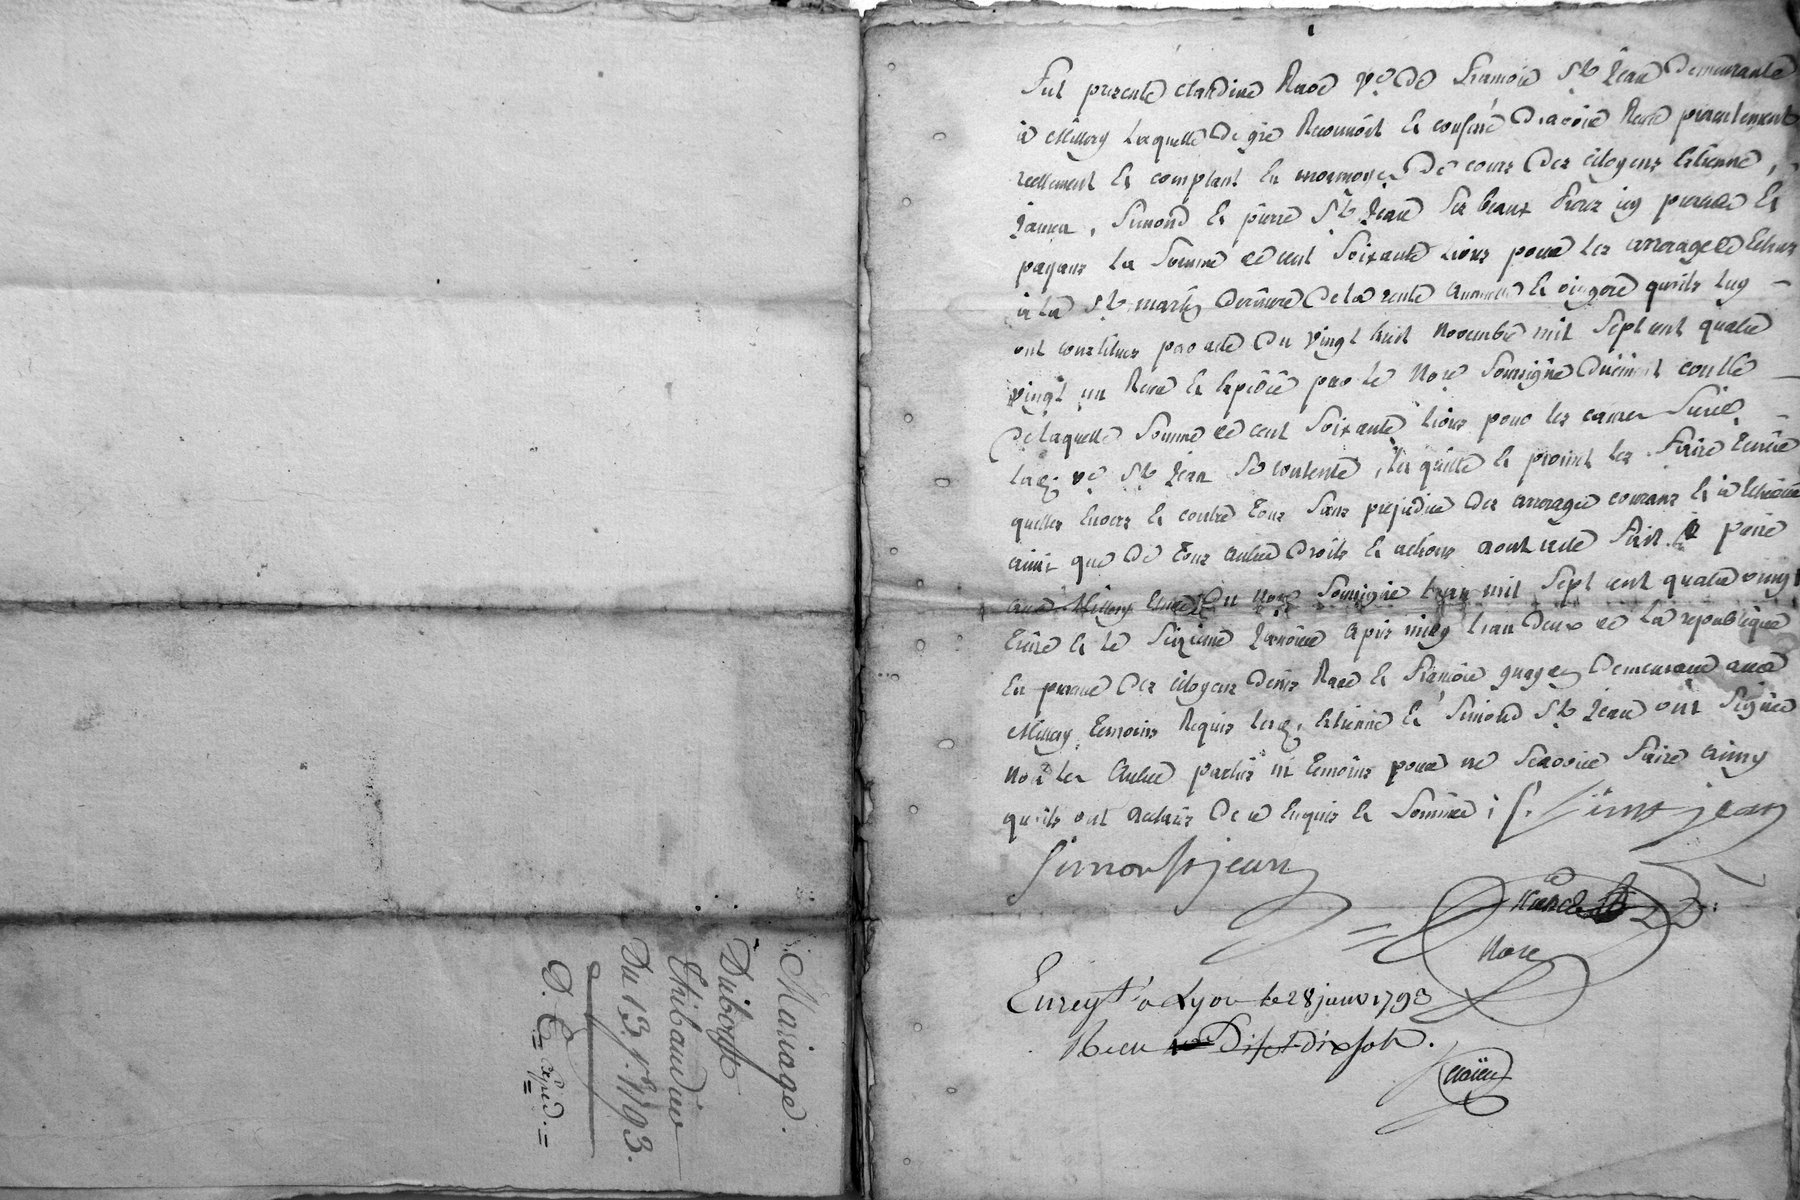 Mariage.
Duborgt
Thibaudier
Du 13 1793.
D. E. Exped.
Fut presente claudine Rave ve de francois St Jean demeurante
a Millery laquelle de gré Reconnoit et confesse d'avoir Receu presentement
reellement et comptant en monnoyes de cours des citoyens Estienne,
Simond et pierre St Jean ses beaux freres icy presents et
payans la somme de cent soixante livres pour les arrerages echus
a la St martin derniere de la rente annuelle et viagere qu'ils luy
ont constitués par acte du vingt huit Novembre mil sept cent quatre
vingt un Receu et expedié par le Nore soussigné duement conllé
de laquelle somme de cent soixante livres pour les causes susd
lad. ve St Jean se contente, les quitte et promet les faire tenir
quittes envers et contre tous sans prejudice des arrerages courans et a echeoir
ainsi que de tous autres droits et actions dont acte fait & passé
aud Millery etude du Nore soussigné l'an mil sept cent quatre vingt
treize et le seizieme Janvier apres midy l'an deux de la republique
En presence des citoyens denis Rave et francois demeurans aud
Millery temoins Requis lesd. Estienne et Simond St Jean ont signé
non les autres parties ni temoins pour ne scavoir faire ainsy
qu'ils ont declaré de ce enquis et sommés ; St jean
simon st jean
Nore
Enregt à Lyon le 28 janv 1793
Recu dix sols.